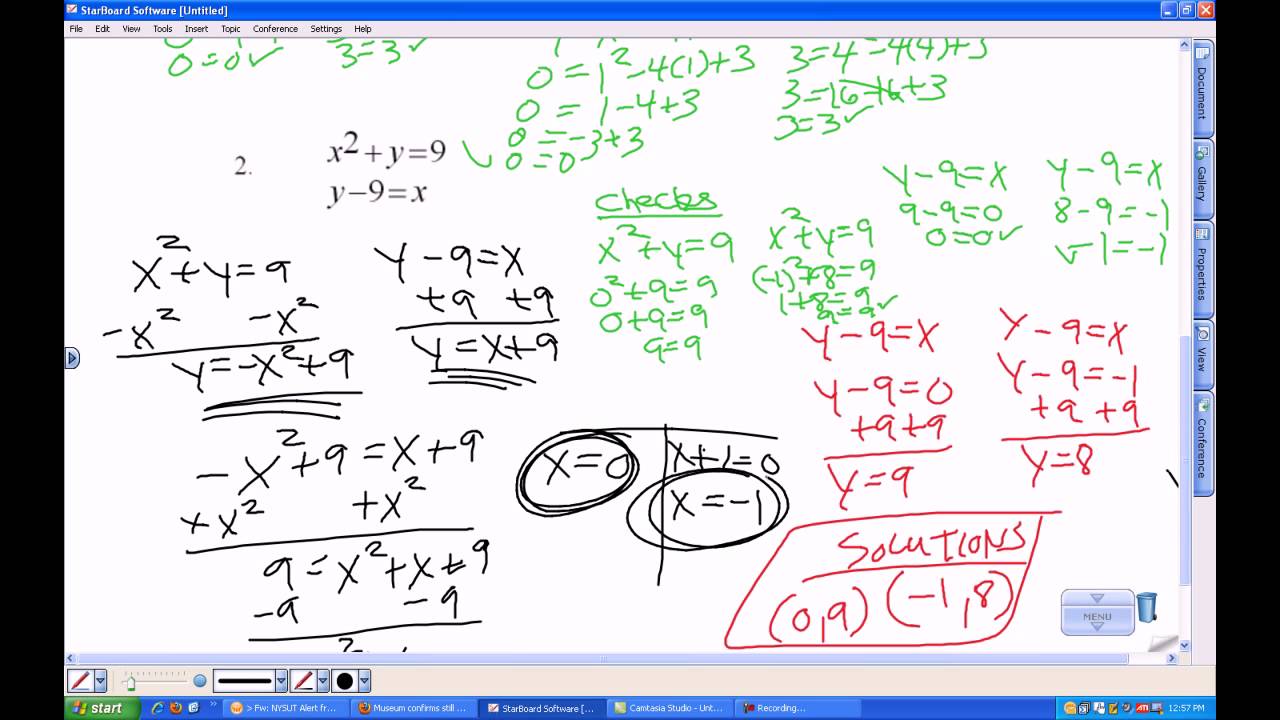 StarBoard Software [Untitled]
File Edit View Tools Insert Topic Conference Settings Help
0=0✓
3=3✓
0=1²-4(1)+3
0=1-4+3
0=-3+3
✓0=0
3=4-4(4)+3
3=16-16+3
3=3✓
2.
x²+y=9
y-9=x
x²+y=9
-x² -x²
y=-x²+9
y-9=x
+9 +9
y=x+9
-x²+9=x+9
+x² +x²
9=x²+x+9
-9 -9
x=0
x+1=0
x=-1
Checks
x²+y=9
0²+9=9
0+9=9
9=9
x²+y=9
(-1)²+8=9
1+8=9
9=9✓
y-9=x
9-9=0
0=0✓
y-9=x
8-9=-1
✓-1=-1
y-9=x
y-9=0
+9 +9
y=9
y-9=x
y-9=-1
+9 +9
y=8
SOLUTIONS
(0,9) (-1,8)
Document
Gallery
Properties
View
Conference
MENU
start
> Fw: NYSUT Alert fr...
Museum confirms still ...
StarBoard Software [...
Camtasia Studio - Unt...
Recording...
12:57 PM